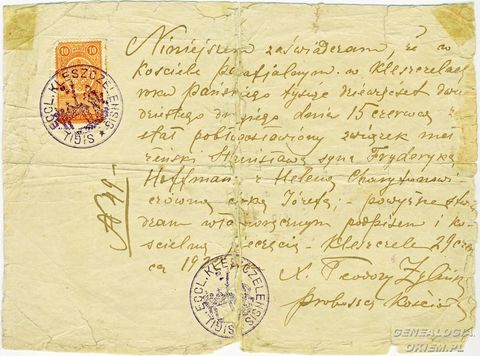 10 10
SIGIL. ECCL. KLESZCZELENSIS
Niniejszem zaświadczam, iż w
kościele parafjalnym w Kleszczelach
roku Pańskiego tysiąc dziewięćset dwu
dziestego drugiego dnia 15 czerwca zo
stał pobłogosławiony związek mał
żeński Stanisława syna Fryderyka
Hoffman z Heleną
córką Józefa; - powyższe stwier
dzam własnoręcznym podpisem i ko
ścielną pieczęcią. - Kleszczele 29 czerw
ca 192
X. Teodor
proboszcz Kościoła
A 49-
SIGIL. ECCL. KLESZCZELENSIS
GENEALOGIA.
OKIEM.PL